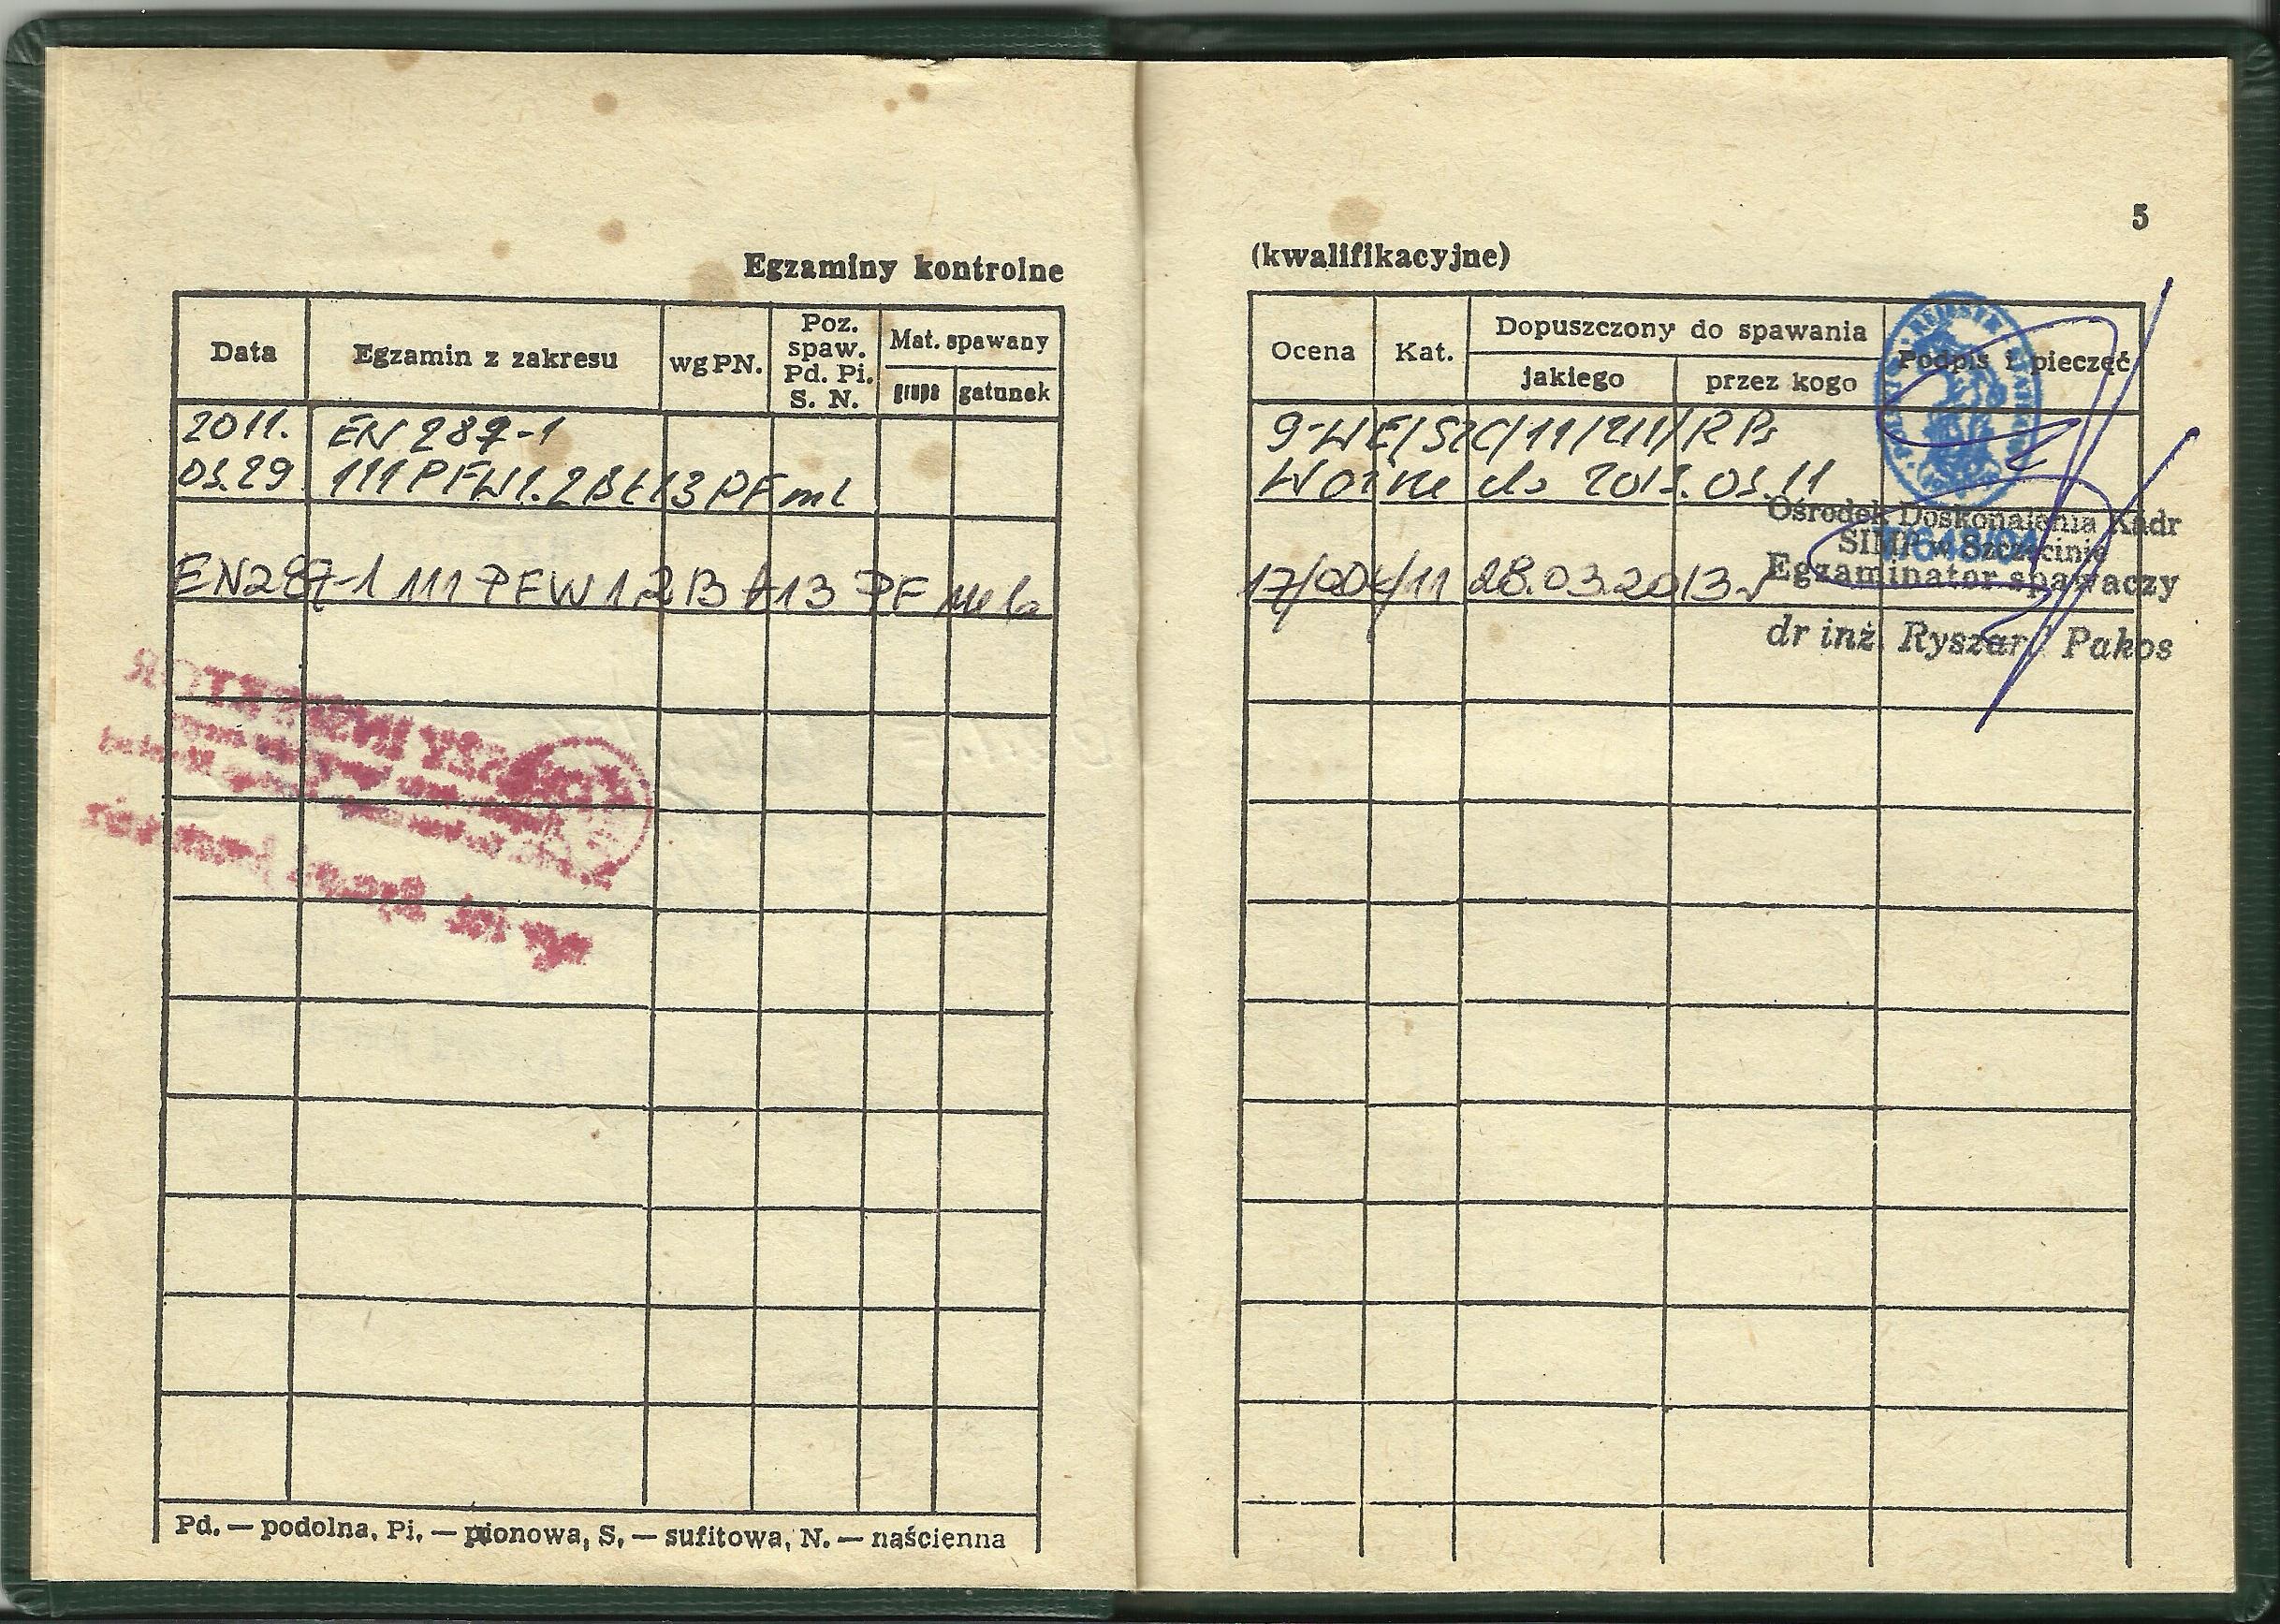 5
Egzaminy kontrolne (kwalifikacyjne)
Data
Egzamin z zakresu
wg PN.
Poz. spaw. Pd. Pi. S. N.
Mat. spawany
grupa
gatunek
Ocena
Kat.
Dopuszczony do spawania
jakiego
przez kogo
Podpis i pieczęć
2011. EN 287-1
03.29 111 PFW1.2Bt13 PF ml
9-WE/SZC/11/211/RPs
Ważne do 2013.03.11
EN287-1 111 PFW 1.2 B t13 PF
28.03.2013
Ośrodek Doskonalenia Kadr
SIMP w Szczecinie
Egzaminator spawaczy
dr inż. Ryszard Pakos
Pd. — podolna, Pi. — pionowa, S. — sufitowa, N. — naścienna